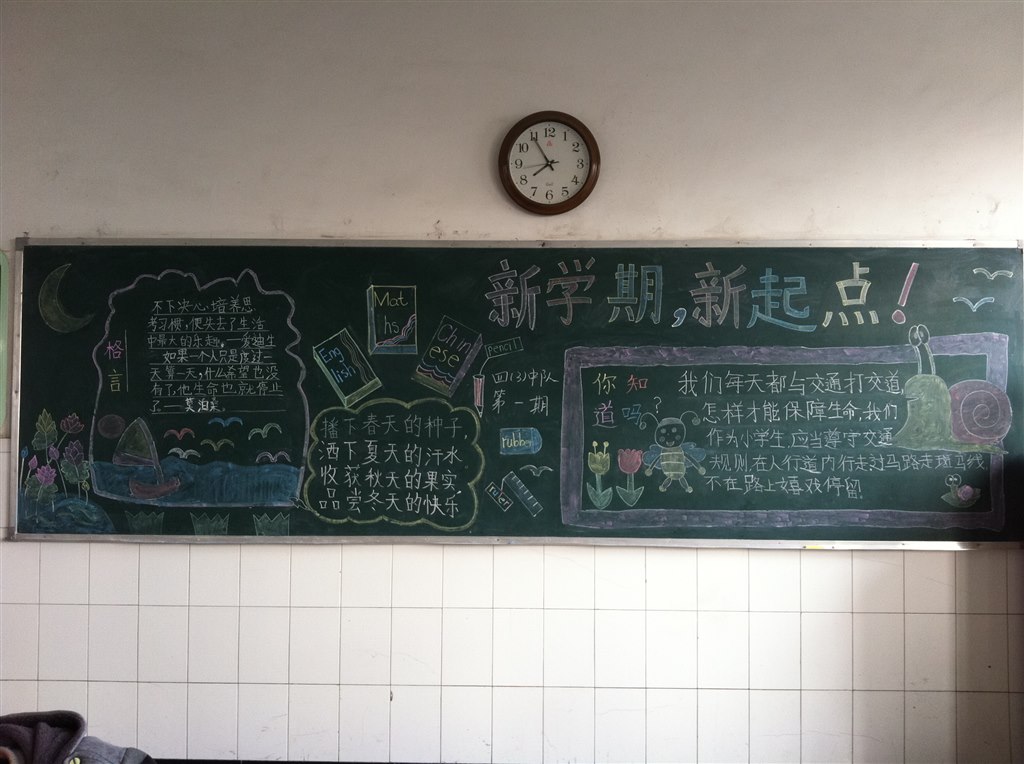 12
1
2
3
4
5
6
7
8
9
10
11
新学期,新起点!
格言
不下决心培养思
考习惯,便失去了生活
中最大的乐趣。——爱迪生
如果一个人只是度过一
天算一天,什么希望也没
有了,他生命也就停止
了——莫泊桑
Mat
hs
Eng
lish
Chin
ese
播下春天的种子,
洒下夏天的汗水
收获秋天的果实
品尝冬天的快乐
pencil
四(3)中队
第一期
rubber
ruler
你知
道吗?
我们每天都与交通打交道,
怎样才能保障生命,我们
作为小学生,应当遵守交通
规则,在人行道内行走,过马路走斑马线
不在路上嬉戏停留.